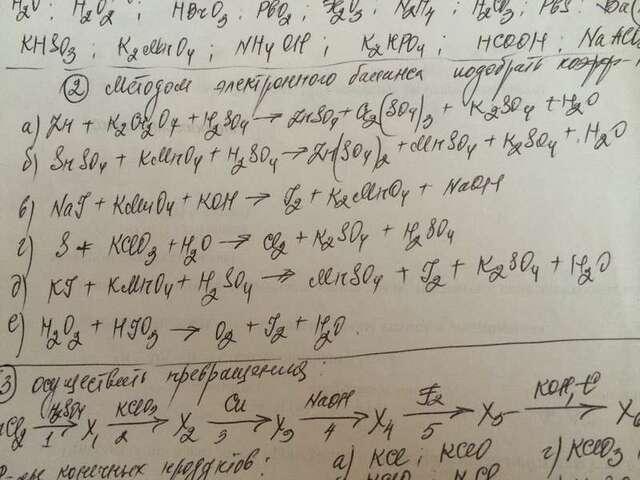 H₂O ; H₂O₂ ; HBrO₃ ; PbO₂ ; N₂H₄ ; H₂CO₃ ; PbS
KHSO₃ ; K₂MnO₄ ; NH₄OH ; K₂HPO₄ ; HCOOH ;
② Методом электронного баланса подобрать коэфф-
а) Zn + K₂Cr₂O₇ + H₂SO₄ → ZnSO₄ + Cr₂(SO₄)₃ + K₂SO₄ + H₂O
б) SnSO₄ + KMnO₄ + H₂SO₄ → Zn(SO₄)₂ + MnSO₄ + K₂SO₄ + H₂O
в) NaI + KMnO₄ + KOH → I₂ + K₂MnO₄ + NaOH
г) S + KClO₃ + H₂O → Cl₂ + K₂SO₄ + H₂SO₄
д) KI + KMnO₄ + H₂SO₄ → MnSO₄ + I₂ + K₂SO₄ + H₂O
е) H₂O₂ + HIO₃ → O₂ + I₂ + H₂O
③ осуществить превращения:
H₂SO₄ KClO₃ Cu NaOH KOH, t°
→ X₁ → X₂ → X₃ → X₄ → X₅ → X₆
1 2 3 4 5
конечных продуктов: а) KCl ; KClO г) KClO₃